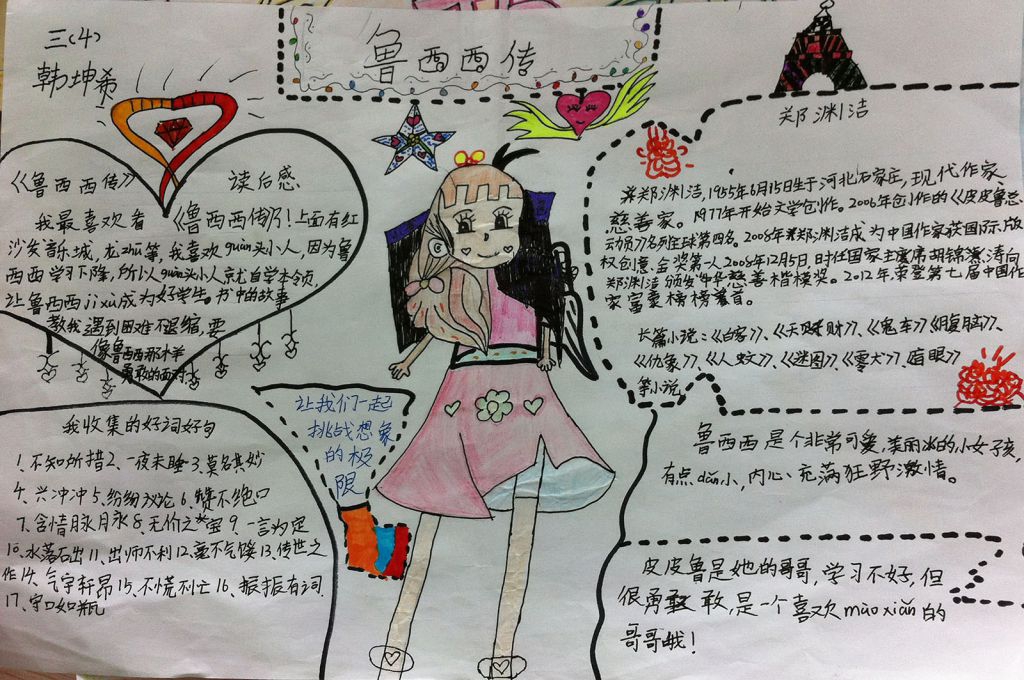 三(4)
韩坤希
鲁西西传
《鲁西西传》 读后感
我最喜欢看《鲁西西传》!上面有红
沙发音乐城,龙zhū等,我喜欢guàn头小人,因为鲁
西西学习下降,所以guàn头小人就自学本领,
让鲁西西jì xù成为好学生。书中的故事
教我遇到困难不退缩,要
像鲁西西那样
勇敢的面对
我收集的好词好句
1、不知所措2、一夜未睡3、莫名其妙
4、兴冲冲5、纷纷议论6、赞不绝口
7、含情脉脉8、无价之宝9、一言为定
10、水落石出11、出师不利12、毫不气馁13、传世之
作14、气宇轩昂15、不慌不亡16、振振有词
17、守口如瓶
让我们一起
挑战想象
的极
限
郑渊洁
郑渊洁,1955年6月15日生于河北石家庄,现代作家、
慈善家。1977年开始文学创作。2006年创作的《皮皮鲁总
动员》名列全球第四名。2008年郑渊洁成为中国作家获国际版
权创意金奖第一人2008年12月5日,时任国家主席胡锦涛向
郑渊洁颁发中华慈善楷模奖。2012年荣登第七届中国作
家富豪榜榜首。
长篇小说:《白客》、《天财》、《鬼车》《腹脑》、
《仇象》、《人蚊》、《迷图》《零犬》
等小说
鲁西西是个非常可爱,美丽的小女孩,
有点dǎn小,内心充满狂野激情。
皮皮鲁是她的哥哥,学习不好,但
很勇敢,是一个喜欢mào xiǎn的
哥哥哦!